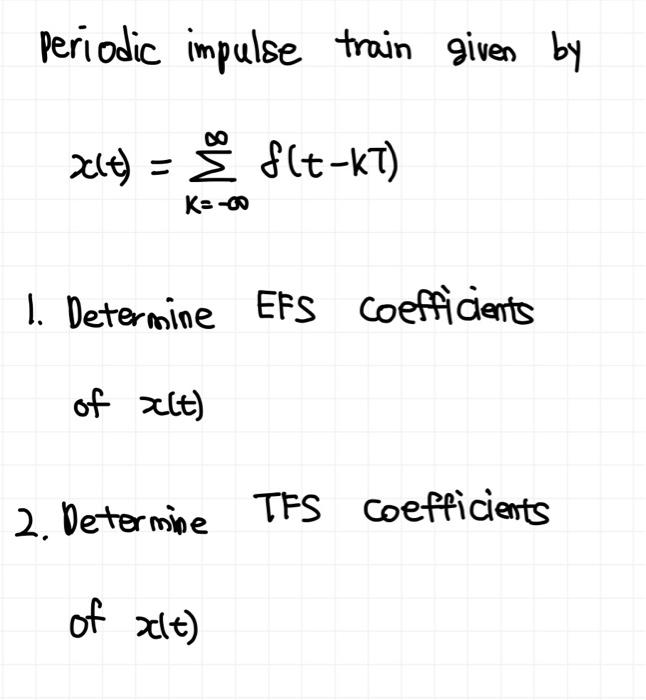 Periodic impulse train given by
x(t) = ∞∑k=-∞ δ(t-kT)
1. Determine EFS coefficients
of x(t)
2. Determine TFS coefficients
of x(t)